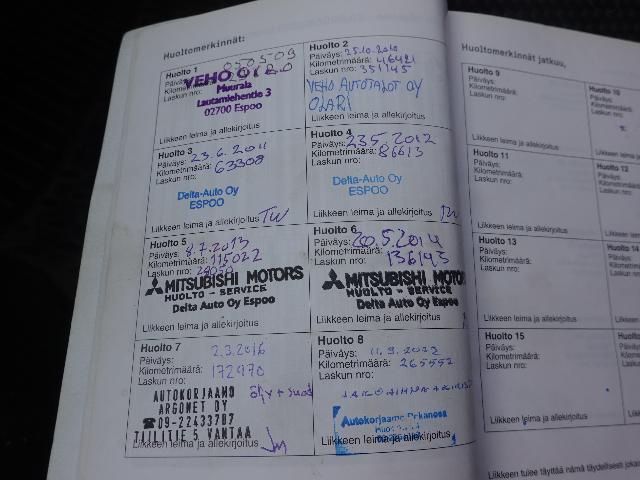 Huoltomerkinnät:
Huolto 1
Päiväys: 050509
Kilometrimäärä:
Laskun nro:
VEHO
Huurala
Lautamiehentie 3
02700 Espoo
Liikkeen leima ja allekirjoitus
Huolto 2
Päiväys: 25.10.2010
Kilometrimäärä: 46421
Laskun nro: 351145
VEHO AUTOTALOT OY
OLARI
Liikkeen leima ja allekirjoitus
Huolto 3
Päiväys: 23.6.2011
Kilometrimäärä: 63308
Laskun nro:
Delta-Auto Oy
ESPOO
Liikkeen leima ja allekirjoitus TW
Huolto 4
Päiväys: 23.5.2012
Kilometrimäärä: 86613
Laskun nro:
Delta-Auto Oy
ESPOO
Liikkeen leima ja allekirjoitus TW
Huolto 5
Päiväys: 8.7.2013
Kilometrimäärä: 115022
Laskun nro: 24050
MITSUBISHI MOTORS
HUOLTO - SERVICE
Delta Auto Oy Espoo
Liikkeen leima ja allekirjoitus
Huolto 6
Päiväys: 20.5.2014
Kilometrimäärä: 136143
Laskun nro:
MITSUBISHI MOTOR
HUOLTO - SERVICE
Delta Auto Oy Espoo
Liikkeen leima ja allekirjoitus
Huolto 7
Päiväys: 2.3.2016
Kilometrimäärä: 172970
Laskun nro:
AUTOKORJAAMO
ARGONET OY
öljy + suod
☎09-22433707
TIILITIE 5 VANTAA
Liikkeen leima ja allekirjoitus
Huolto 8
Päiväys: 11.9.2022
Kilometrimäärä: 265552
Laskun nro:
Autokorjaamo
Liikkeen leima ja allekirjoitus
Huoltomerkinnät jatkuu,
Huolto 9
Päiväys:
Kilometrimäärä:
Laskun nro:
Liikkeen leima ja allekirjoitus
Huolto 10
Päiväys:
Kilometrimäärä:
Laskun nro:
Liikkeen leima
Huolto 11
Päiväys:
Kilometrimäärä:
Laskun nro:
Liikkeen leima ja allekirjoitus
Huolto 12
Päiväys:
Kilometri
Laskun nro
Liikkeen leima
Huolto 13
Päiväys:
Kilometrimäärä:
Laskun nro:
Liikkeen leima ja allekirjoitus
Huolto 14
Päiväys:
Kilometri
Laskun
Liikkeen
Huolto 15
Päiväys:
Kilometrimäärä:
Laskun nro:
Liikkeen leima ja allekirjoitus
Liikkeen tulee täyttää nämä täydellisesti